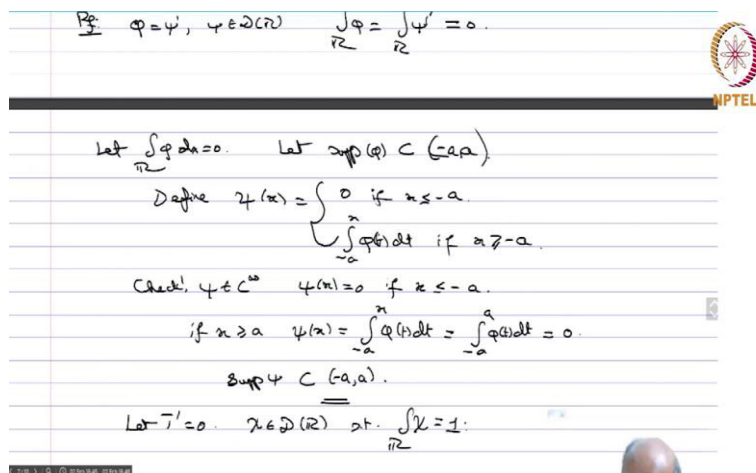 Pf: φ = ψ', ψ ∈ 𝒟(ℝ) ∫_ℝ φ = ∫_ℝ ψ' = 0.
NPTEL
Let ∫_ℝ φ dx = 0. Let supp(φ) ⊂ (-a,a).
Define ψ(x) = { 0 if x ≤ -a.
∫_{-a}^{x} φ(t)dt if x ≥ -a.
Check! ψ ∈ C^∞ ψ(x) = 0 if x ≤ -a.
if x ≥ a ψ(x) = ∫_{-a}^{x} φ(t)dt = ∫_{-a}^{a} φ(t)dt = 0.
Supp ψ ⊂ (-a,a).
Let T' = 0. χ ∈ 𝒟(ℝ) st. ∫_ℝ χ = 1.